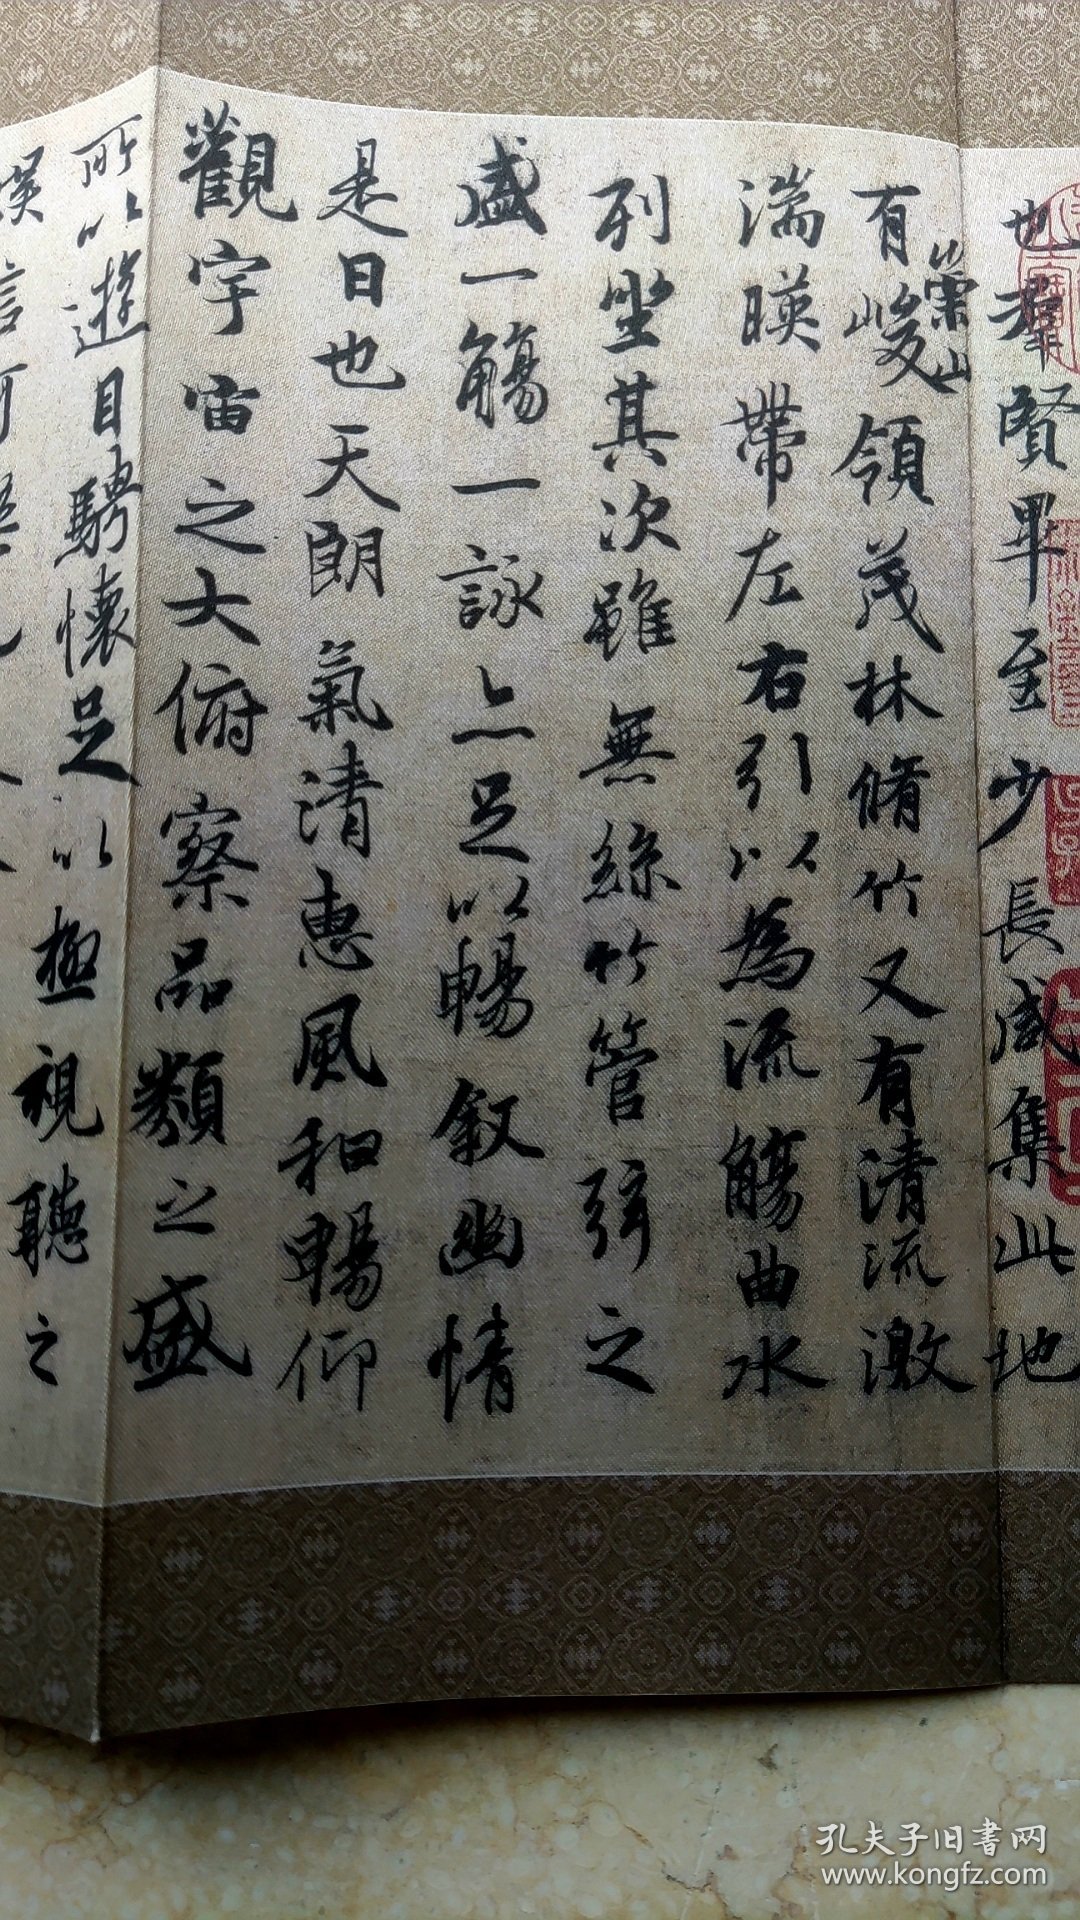 也群賢畢至少長咸集此地
有崇山峻領茂林脩竹又有清流激
湍暎帶左右引以為流觴曲水
列坐其次雖無絲竹管弦之
盛一觴一詠亦足以暢敘幽情
是日也天朗氣清惠風和暢仰
觀宇宙之大俯察品類之盛
所以遊目騁懷足以極視聽之
孔夫子旧書网
www.kongfz.com